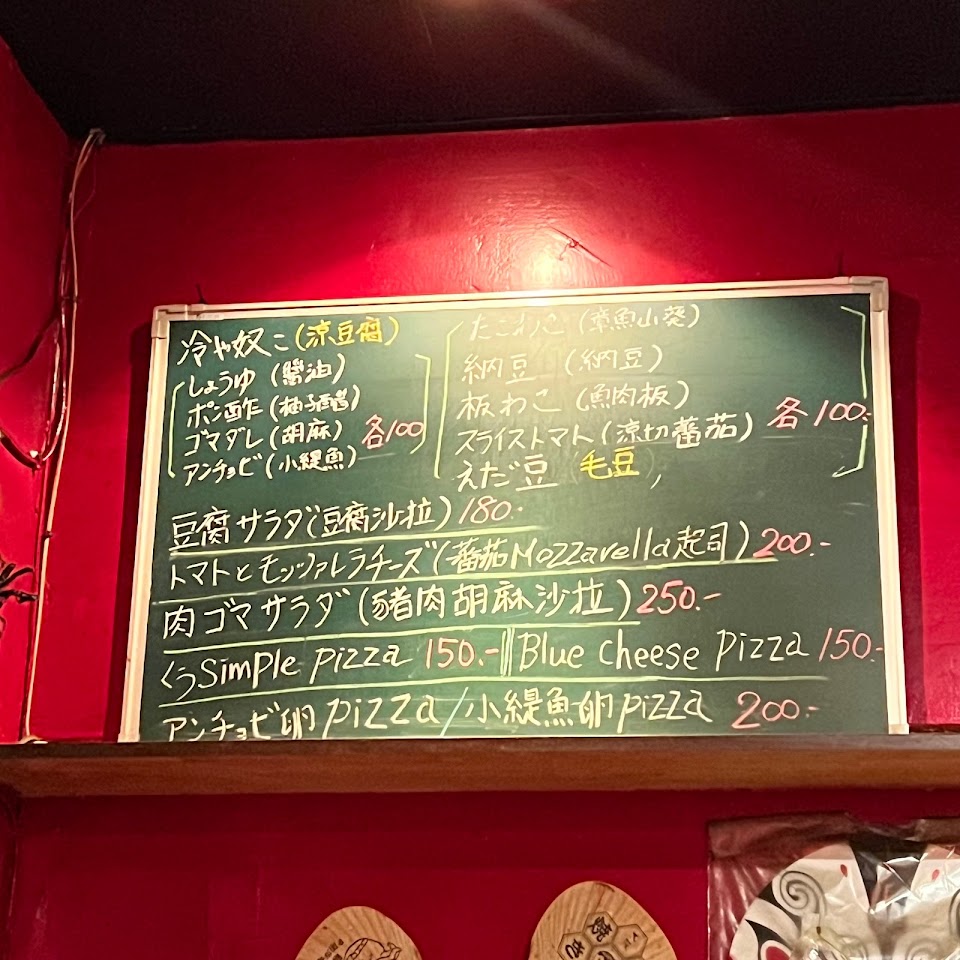 冷や奴こ(涼豆腐)
しょうゆ (醬油)
ポン酢 (柚子醋)
ゴマダレ (胡麻)
アンチョビ (小緹魚)
各100
たこわこ (章魚山葵)
納豆 (納豆)
板わこ (魚肉板)
スライストマト (涼切蕃茄)
えだ豆 毛豆
各100.-
豆腐サラダ (豆腐沙拉) 180.-
トマトとモッツァレラチーズ (蕃茄Mozzarella起司) 200.-
肉ゴマサラダ (豬肉胡麻沙拉) 250.-
くう Simple pizza 150.- Blue cheese pizza 150.-
アンチョビ卵 pizza / 小緹魚卵 pizza 200.-